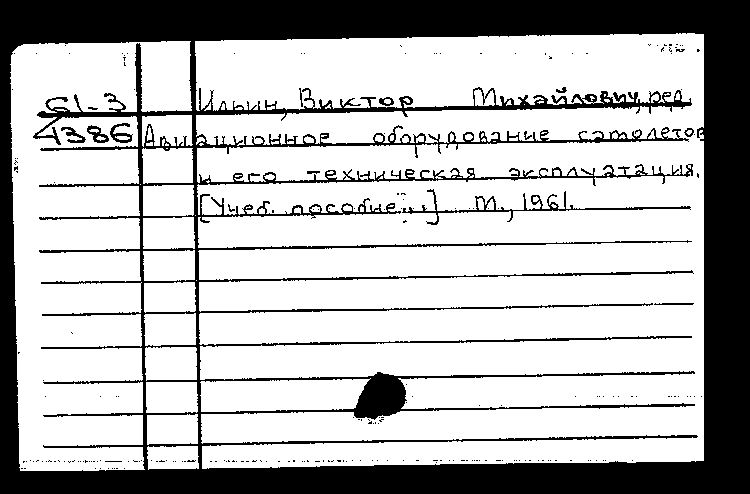 61-3 Ильин, Виктор Михайлович, ред.
4386 Авиационное оборудование самолетов
и его техническая эксплуатация.
[Учеб. пособие...] М., 1961.